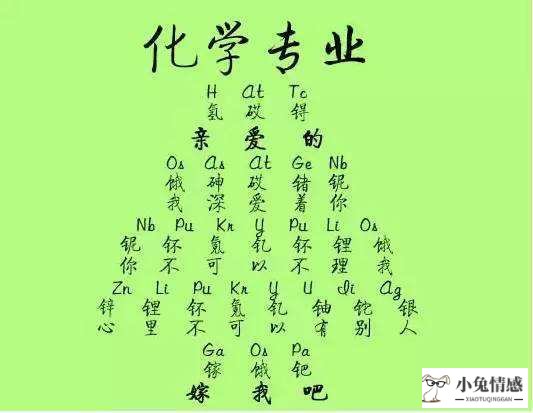 化学专业
H At Tc
氢 砹 锝
亲 爱 的
Os As At Ge Nb
锇 砷 砹 锗 铌
我 深 爱 着 你
Nb Pu Kr Y Pu Li Os
铌 钚 氪 钇 钚 锂 锇
你 不 可 以 不 理 我
Zn Li Pu Kr Y U Ti Ag
锌 锂 钚 氪 钇 铀 铊 银
心 里 不 可 以 有 别 人
Ga Os Pa
镓 锇 钯
嫁 我 吧
小兔情感
XIAOTUQINGGAN